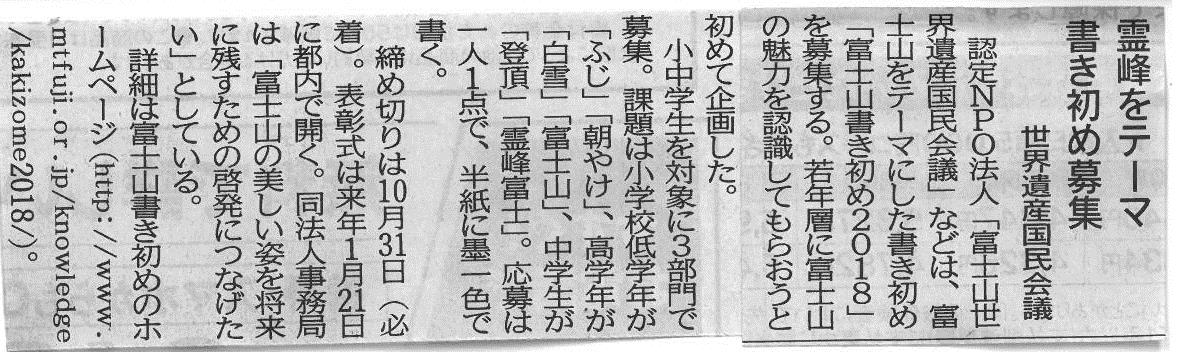 霊峰をテーマ
書き初め募集
世界遺産国民会議
認定NPO法人「富士山世
界遺産国民会議」などは、富
士山をテーマにした書き初め
「富士山書き初め2018」
を募集する。若年層に富士山
の魅力を認識してもらおうと
初めて企画した。
小中学生を対象に3部門で
募集。課題は小学校低学年が
「ふじ」「朝やけ」、高学年が
「白雪」「富士山」、中学生が
「登頂」「霊峰富士」。応募は
一人1点で、半紙に墨一色で
書く。
締め切りは10月31日（必
着）。表彰式は来年1月21日
に都内で開く。同法人事務局
は「富士山の美しい姿を将来
に残すための啓発につなげた
い」としている。
詳細は富士山書き初めのホ
ームページ(http://www.
mtfuji.or.jp/knowledge
/kakizome2018/)。